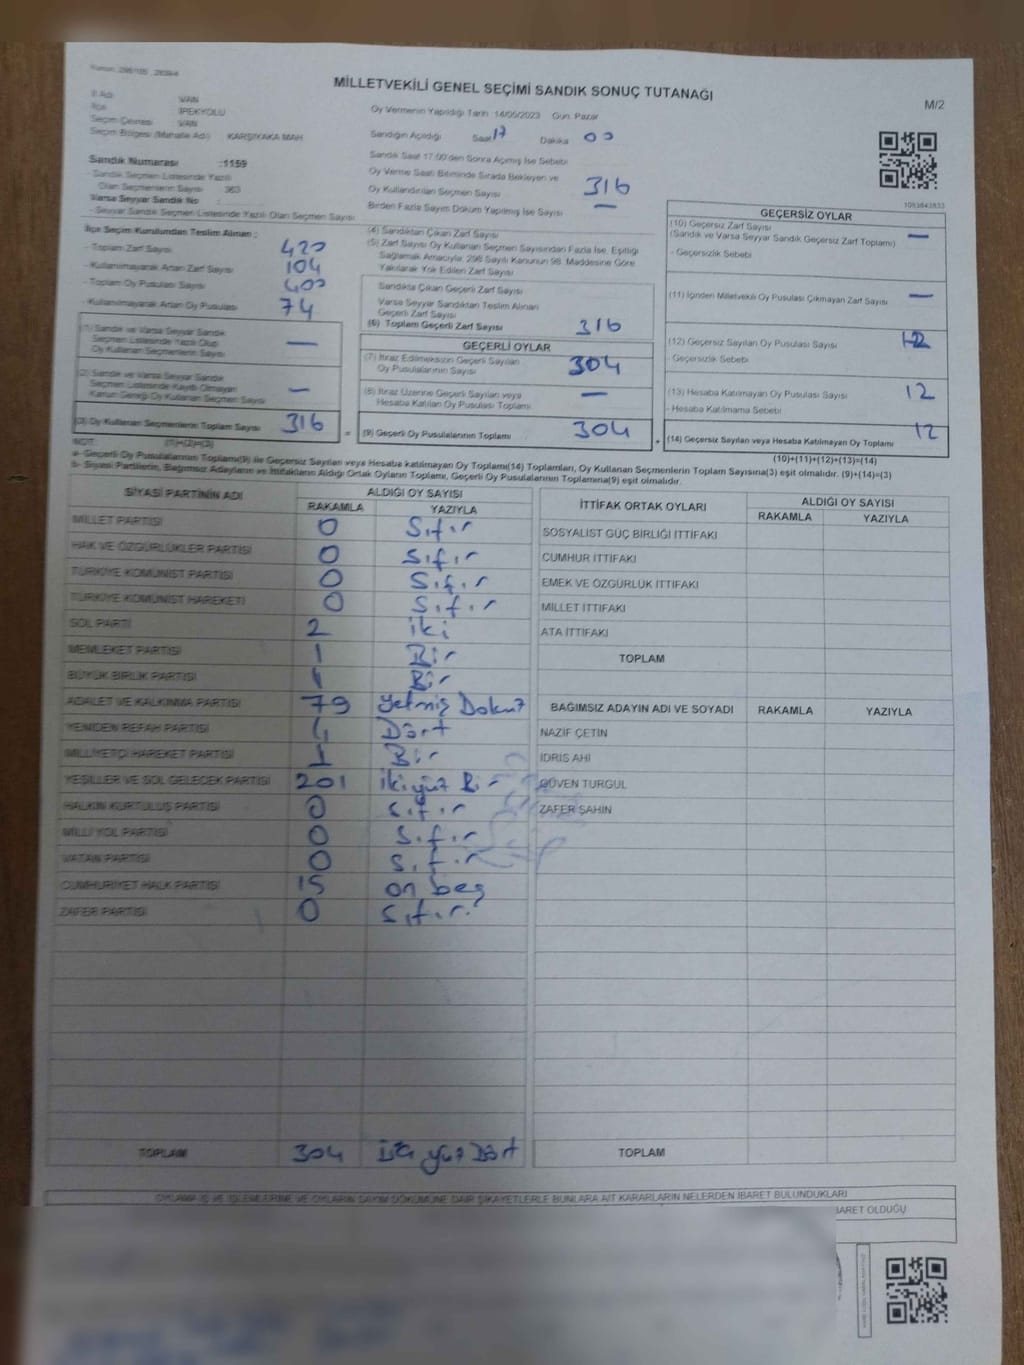 MİLLETVEKİLİ GENEL SEÇİMİ SANDIK SONUÇ TUTANAĞI
M/2
İl Adı VAN
İlçe İPEKYOLU
Seçim Çevresi VAN
Seçim Bölgesi (Mahalle Adı) KARŞIYAKA MAH
Sandık Numarası :1159
- Sandık Seçmen Listesinde Yazılı
Olan Seçmenlerin Sayısı 363
Varsa Seyyar Sandık No
- Seyyar Sandık Seçmen Listesinde Yazılı Olan Seçmen Sayısı
Oy Vermenin Yapıldığı Tarih 14/05/2023 Gün Pazar
Sandığın Açıldığı Saat 17 Dakika 00
Sandık Saat 17:00'den Sonra Açılmış İse Sebebi
Oy Verme Saati Bitiminde Sırada Bekleyen ve
Oy Kullandırılan Seçmen Sayısı 316
Birden Fazla Sayım Döküm Yapılmış İse Sayısı —
1093843833
İlçe Seçim Kurulundan Teslim Alınan :
- Toplam Zarf Sayısı 420
- Kullanılmayarak Artan Zarf Sayısı 104
- Toplam Oy Pusulası Sayısı 400
- Kullanılmayarak Artan Oy Pusulası 74
(1) Sandık ve Varsa Seyyar Sandık
Seçmen Listesinde Yazılı Olup
Oy Kullanan Seçmenlerin Sayısı —
(2) Sandık ve Varsa Seyyar Sandık
Seçmen Listesinde Kayıtlı Olmayan
Kanun Gereği Oy Kullanan Seçmen Sayısı —
(3) Oy Kullanan Seçmenlerin Toplam Sayısı 316
NOT: (1)+(2)=(3)
(4) Sandıktan Çıkan Zarf Sayısı
(5) Zarf Sayısı Oy Kullanan Seçmen Sayısından Fazla İse, Eşitliği
Sağlamak Amacıyla; 298 Sayılı Kanunun 98. Maddesine Göre
Yakılarak Yok Edilen Zarf Sayısı
Sandıkta Çıkan Geçerli Zarf Sayısı
Varsa Seyyar Sandıktan Teslim Alınan
Geçerli Zarf Sayısı
(6) Toplam Geçerli Zarf Sayısı 316
GEÇERLİ OYLAR
(7) İtiraz Edilmeksizin Geçerli Sayılan
Oy Pusulalarının Sayısı 304
(8) İtiraz Üzerine Geçerli Sayılan veya
Hesaba Katılan Oy Pusulası Toplamı —
= (9) Geçerli Oy Pusulalarının Toplamı 304 +
GEÇERSİZ OYLAR
(10) Geçersiz Zarf Sayısı
(Sandık ve Varsa Seyyar Sandık Geçersiz Zarf Toplamı) —
- Geçersizlik Sebebi
(11) İçinden Milletvekili Oy Pusulası Çıkmayan Zarf Sayısı —
(12) Geçersiz Sayılan Oy Pusulası Sayısı
Geçersizlik Sebebi
(13) Hesaba Katılmayan Oy Pusulası Sayısı 12
- Hesaba Katılmama Sebebi
(14) Geçersiz Sayılan veya Hesaba Katılmayan Oy Toplamı 12
(10)+(11)+(12)+(13)=(14)
a- Geçerli Oy Pusulalarının Toplamı(9) ile Geçersiz Sayılan veya Hesaba katılmayan Oy Toplamı(14) Toplamları, Oy Kullanan Seçmenlerin Toplam Sayısına(3) eşit olmalıdır. (9)+(14)=(3)
b- Siyasi Partilerin, Bağımsız Adayların ve İttifakların Aldığı Ortak Oyların Toplamı, Geçerli Oy Pusulalarının Toplamına(9) eşit olmalıdır.
SİYASİ PARTİNİN ADI ALDIĞI OY SAYISI
RAKAMLA YAZIYLA
MİLLET PARTİSİ 0 Sıfır
HAK VE ÖZGÜRLÜKLER PARTİSİ 0 Sıfır
TÜRKİYE KOMÜNİST PARTİSİ 0 Sıfır
TÜRKİYE KOMÜNİST HAREKETİ 0 Sıfır
SOL PARTİ 2 iki
MEMLEKET PARTİSİ 1 Bir
BÜYÜK BİRLİK PARTİSİ 1 Bir
ADALET VE KALKINMA PARTİSİ 79 Yetmiş Dokuz
YENİDEN REFAH PARTİSİ 4 Dört
MİLLİYETÇİ HAREKET PARTİSİ 1 Bir
YEŞİLLER VE SOL GELECEK PARTİSİ 201 iki yüz Bir
HALKIN KURTULUŞ PARTİSİ 0 Sıfır
MİLLİ YOL PARTİSİ 0 Sıfır
VATAN PARTİSİ 0 Sıfır
CUMHURİYET HALK PARTİSİ 15 on beş
ZAFER PARTİSİ 0 Sıfır
TOPLAM 304 yüz Dört
İTTİFAK ORTAK OYLARI ALDIĞI OY SAYISI
RAKAMLA YAZIYLA
SOSYALİST GÜÇ BİRLİĞİ İTTİFAKI
CUMHUR İTTİFAKI
EMEK VE ÖZGÜRLÜK İTTİFAKI
MİLLET İTTİFAKI
ATA İTTİFAKI
TOPLAM
BAĞIMSIZ ADAYIN ADI VE SOYADI RAKAMLA YAZIYLA
NAZİF ÇETİN
İDRİS AHİ
GÜVEN TURGUL
ZAFER ŞAHİN
TOPLAM
OYLAMA İŞ VE İŞLEMLERİNE VE OYLARIN SAYIM DÖKÜMÜNE DAİR ŞİKAYETLERLE BUNLARA AİT KARARLARIN NELERDEN İBARET BULUNDUKLARI
İBARET OLDUĞU